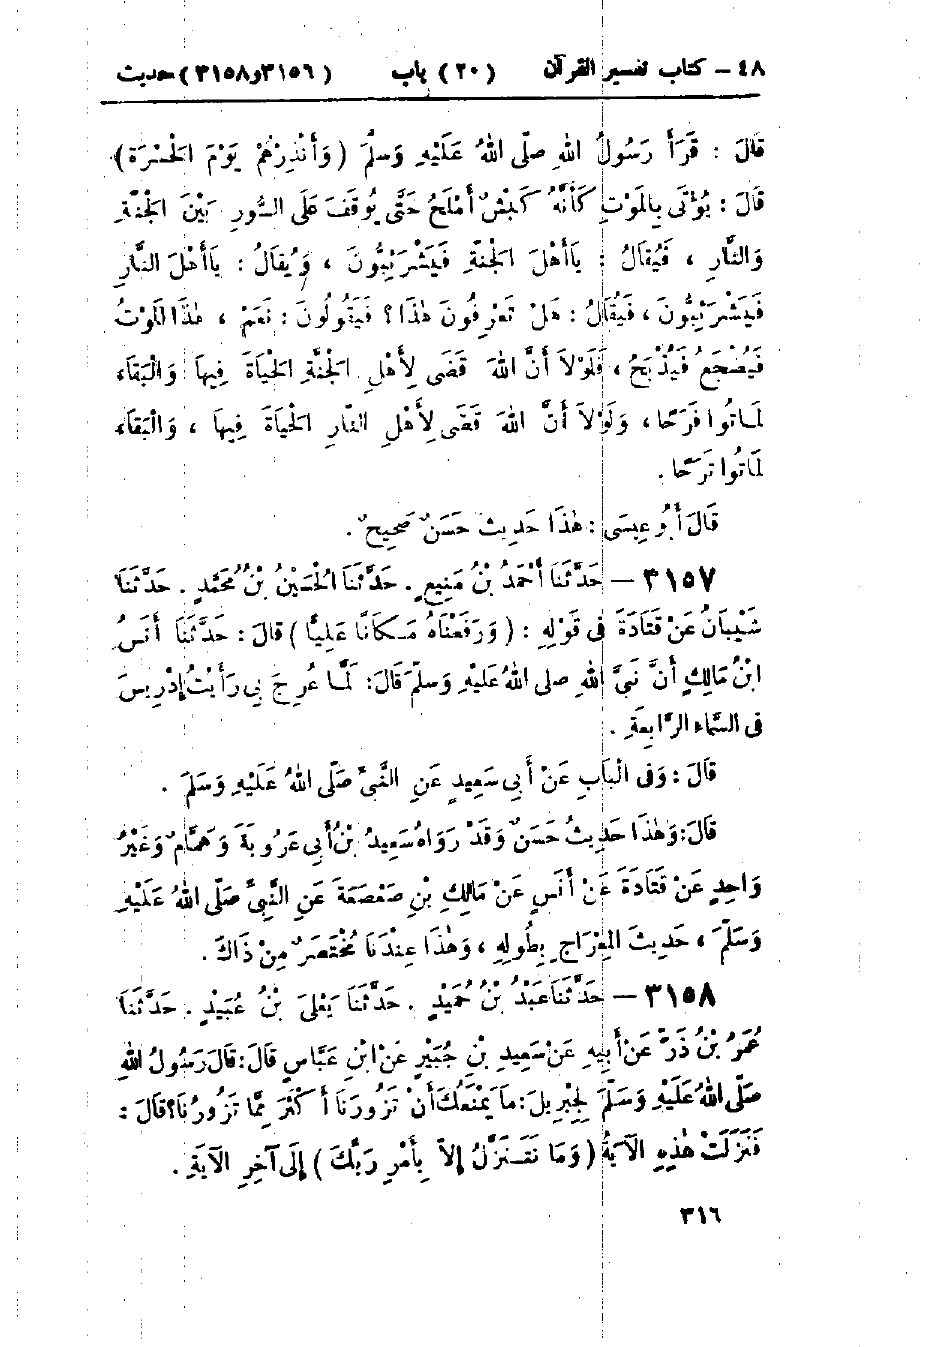 ٤٨ – كتاب تفسير القرآن (٢٠) باب (٣١٥٦و٣١٥٨) حديث
قَالَ : قَرَأَ رَسُولُ اللهِ صلّى اللهُ عَلَيْهِ وَسَلَّمَ (وَأَنْذِرْهُمْ يَوْمَ الحَسْرَةِ)
قَالَ : يُؤْتَى بِالمَوْتِ كَأَنَّهُ كَبْشٌ أَمْلَحُ حَتَّى يُوقَفَ عَلَى السُّورِ بَيْنَ الجَنَّةِ
وَالنَّارِ ، فَيُقَالُ : يَاأَهْلَ الجَنَّةِ فَيَشْرَئِبُّونَ ، وَيُقالُ : يَاأَهْلَ النَّارِ
فَيَشْرَئِبُّونَ ، فَيُقَالُ : هَلْ تَعْرِفُونَ هٰذَا ؟ فَيَقُولُونَ : نَعَمْ ، هٰذَا المَوْتُ
فَيُضْجَعُ فَيُذْبَحُ ، فَلَوْلاَ أَنَّ اللهَ قَضَى لِأَهْلِ الجَنَّةِ الحَيَاةَ فِيهَا وَالْبَقَاءَ
لَمَاتُوا فَرَحًا ، وَلَوْلاَ أَنَّ اللهَ قَضَى لِأَهْلِ النّارِ الحَيَاةَ فِيهَا ، وَالْبَقَاءَ
لَمَاتُوا تَرَحًا .
قَالَ أَبُو عِيسَى : هٰذَا حَدِيثٌ حَسَنٌ صَحِيحٌ .
٣١٥٧ – حَدَّثَنَا أَحْمَدُ بْنُ مَنِيعٍ . حَدَّثَنَا الْحُسَيْنُ بْنُ مُحَمَّدٍ . حَدَّثَنَا
شَيْبَانُ عَنْ قَتَادَةَ فِى قَوْلِهِ : (وَرَفَعْنَاهُ مَكَانًا عَلِيًّا) قالَ : حَدَّثَنَا أَنَسُ
ابْنُ مَالِكٍ أَنَّ نَبِيَّ اللهِ صلى اللهُ عَلَيْهِ وَسلّمَ قَالَ : لَمَّا عُرِجَ بِي رَأَيْتُ إِدْرِيسَ
فى السَّمَاءِ الرَّابِعَةِ .
قَالَ : وَفى الْبَابِ عَنْ أَبِي سَعِيدٍ عَنِ النَّبيِّ صَلّى اللهُ عَلَيْهِ وَسَلمَ .
قَالَ : وَهٰذَا حَدِيثُ حَسَنٌ وَقَدْ رَوَاهُ سَعِيدُ بْنُ أَبِي عَرُوبَةَ وَهَمَّامٌ وَغَيْرُ
وَاحِدٍ عَنْ قَتَادَةَ عَنْ أَنَسٍ عَنْ مَالِكِ بْنِ صَعْصَعَةَ عَنِ النَّبِيِّ صَلّى اللهُ عَلَيْهِ
وَسَلّمَ ، حَدِيثَ المِعْرَاجِ بِطُولِهِ ، وَهٰذَا عِنْدَنَا مُخْتَصَرٌ مِنْ ذَاكَ .
٣١٥٨ – حَدَّثَنَا عَبْدُ بْنُ حُمَيْدٍ . حَدَّثَنَا يَعْلَى بْنُ عُبَيْدٍ . حَدَّثَنَا
عُمَرُ بْنُ ذَرٍّ عَنْ أَبِيهِ عَنْ سَعِيدِ بْنِ جُبَيْرٍ عَنْ ابْنِ عَبَّاسٍ قَالَ : قَالَ رَسُولُ اللهِ
صَلّى اللهُ عَلَيْهِ وَسَلَّمَ لِجِبْرِيلَ : مَا يَمْنَعُكَ أَنْ تَزُورَنَا أَكْثَرَ مِمَّا تَزُورُنَا ؟ قَالَ :
فَنَزَلَتْ هٰذِهِ الآيَةُ (وَمَا نَتَنَزَّلُ إِلاَّ بِأَمْرِ رَبِّكَ) إِلَى آخِرِ الآيَةِ .
٣١٦